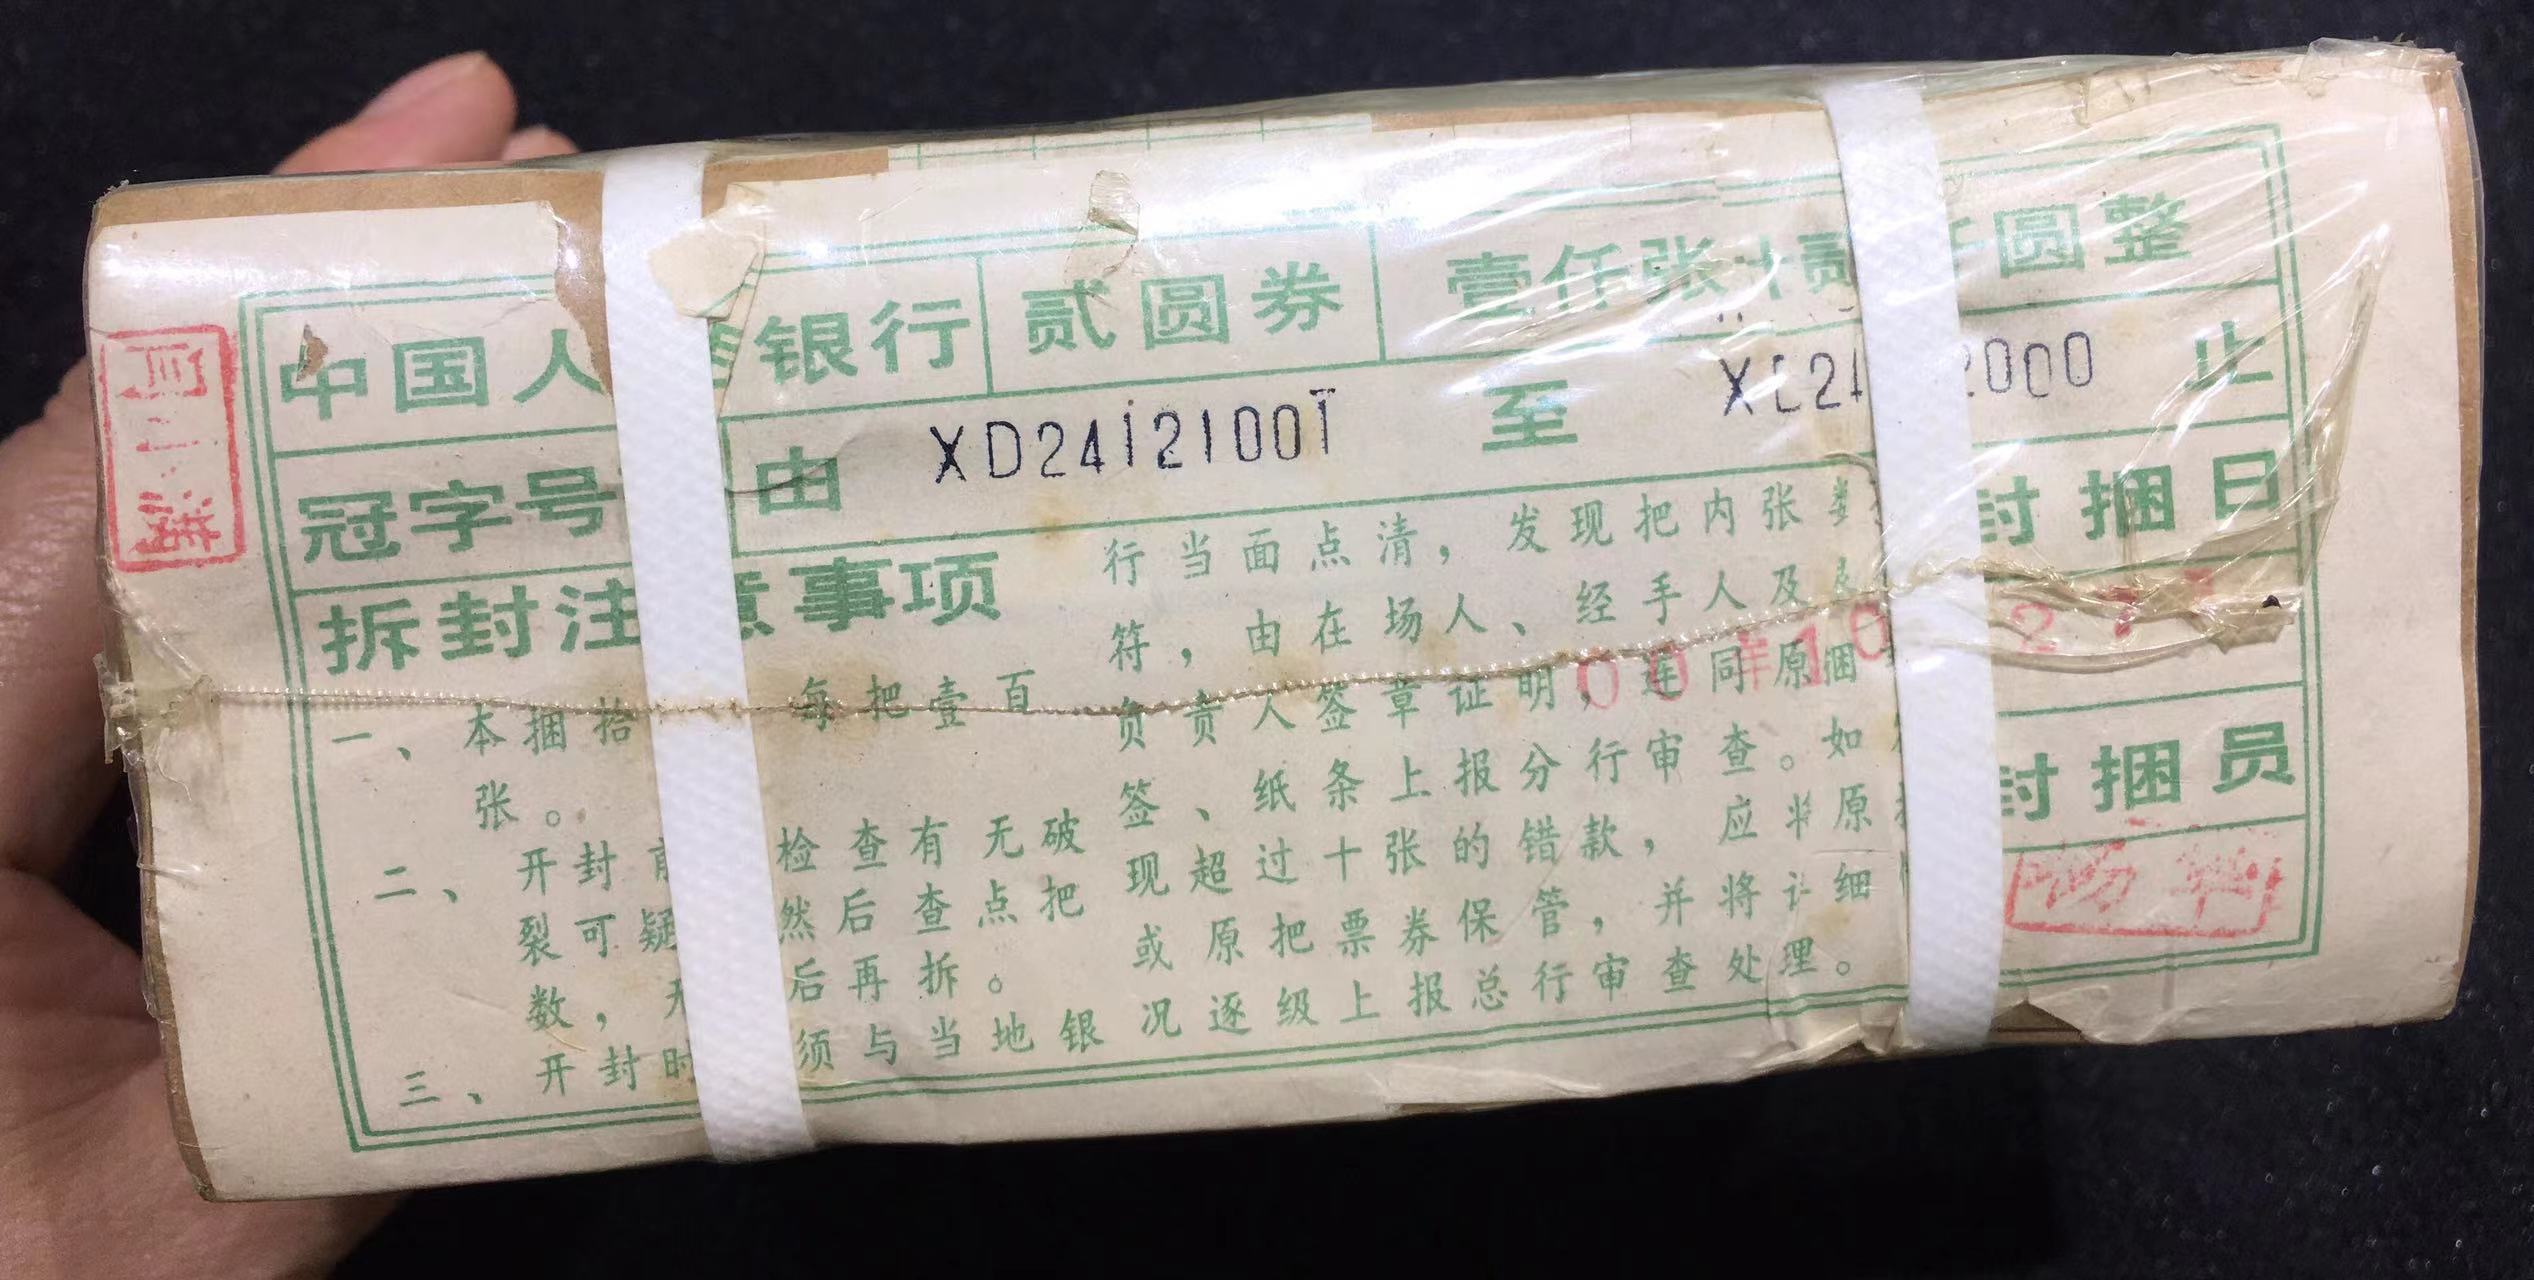 中国人 银行 贰圆券 壹仟张计贰 圆整
冠字号 由 XD24121001 至 X 24 2000 止
拆封注意事项
一、本捆拾 每把壹百
张。
二、开封前 检查有无破
裂可疑 然后查点把
数， 后再拆。
三、开封时 须与当地银
行当面点清，发现把内张数
符，由在场人、经手人及
负责人签章证明，连同原捆
签、纸条上报分行审查。如
现超过十张的错款，应将原
或原把票券保管，并将 细
况逐级上报总行审查处理。
封捆日
00年10 27
封捆员